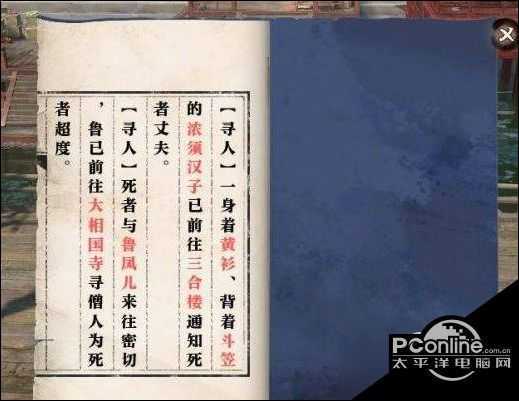 【寻人】一身着黄衫、背着斗笠
的浓须汉子已前往三合楼通知死
者丈夫。
【寻人】死者与鲁凤儿来往密切
，鲁已前往大相国寺寻僧人为死
者超度。
PConline.com.cn
太平洋电脑网